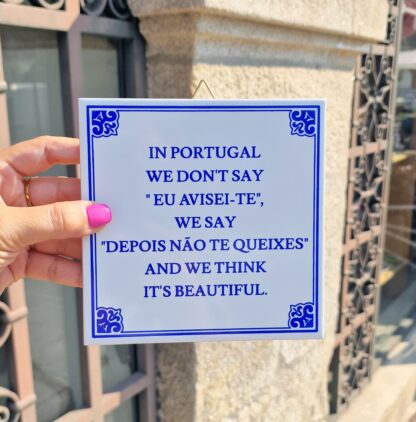 IN PORTUGAL
WE DON'T SAY
" EU AVISEI-TE",
WE SAY
"DEPOIS NÃO TE QUEIXES"
AND WE THINK
IT'S BEAUTIFUL.